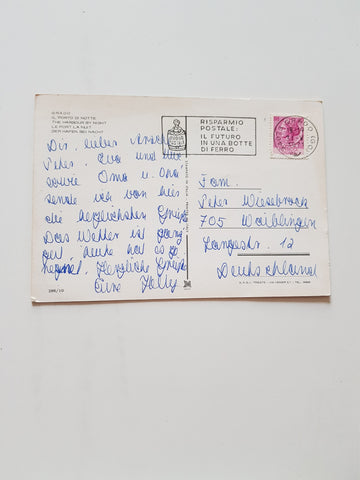 GRADO
IL PORTO DI NOTTE
THE HARBOUR BY NIGHT
LE PORT LA NUIT
DER HAFEN BEI NACHT
RISPARMIO
POSTALE:
IL FUTURO
IN UNA BOTTE
DI FERRO
Dir, lieber
Peter, Eva und
sowie Oma u. Opa
sende ich von hier
die herzlichsten Grüße
Das Wetter ist ganz
gut heute hat es ge
regnet. Herzliche Grüße
Eure Helly
Fam.
Peter Wiesebrock
705 Waiblingen
Langestr. 12
Deutschland
286/10